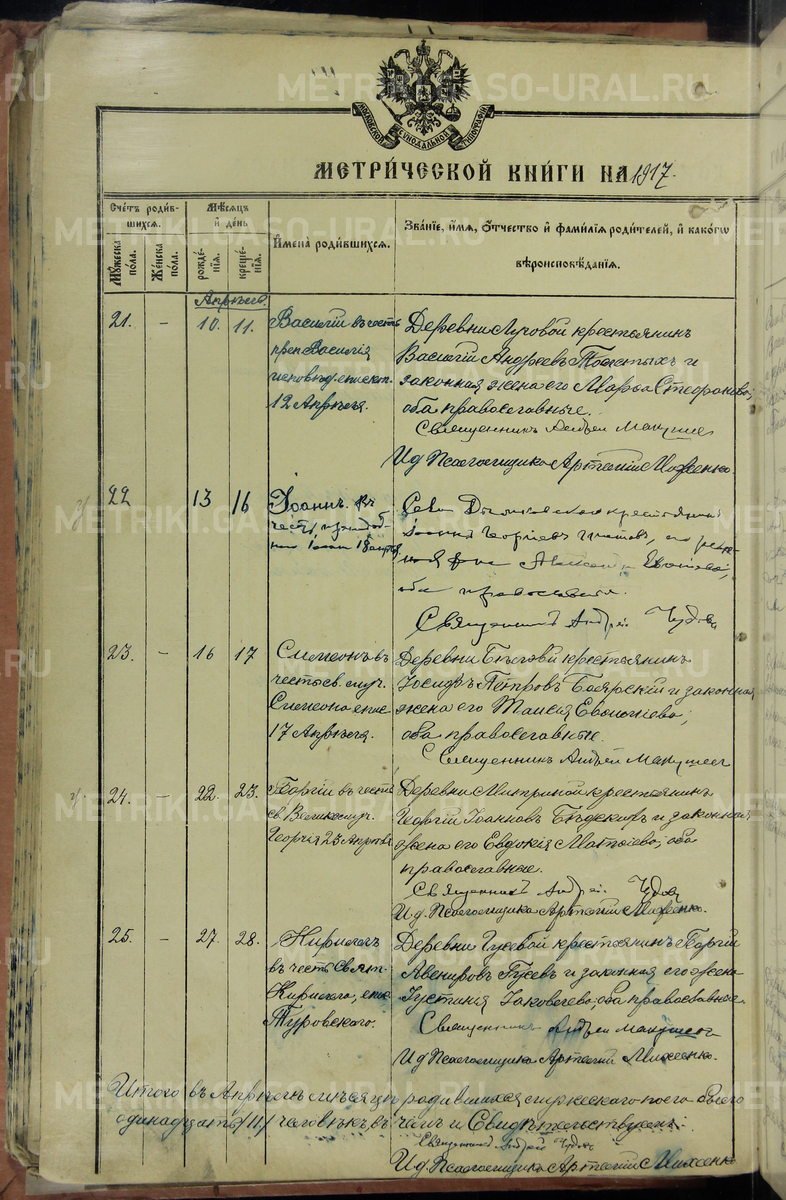 МОСКОВСКОЙ СѴНОДАЛЬНОЙ ТИПОГРАФІИ
МЕТРИ́ЧЕСКОЙ КНИ́ГИ НА 1917.
Сче́тъ роди́в-
шихся.
Мꙋ́жеска
по́ла.
Же́нска
по́ла.
Мѣ́сяцъ
и҆ де́нь
рожде́-
нїѧ.
креще́-
нїѧ.
И҆мена̀ роди́вшихсѧ.
Зва́нїе, и҆́мѧ, ѻ҆́тчество и҆ фами́лїѧ роди́телей, и҆ како́гѡ
вѣроисповѣ́данїѧ.
Апрѣль
21. – 10. 11.
Василій въ честь
преп Василія
исповѣд. епископ.
12 Апрѣля.
Деревни Луговой крестьянинъ
Василій Андреевъ Толстыхъ и
законная жена его Марѳа Стефанова;
оба православные.
Священникъ Андрей
И д Псаломщика Артемій
22 13 16
Іоаннъ. Въ
честь
Іоан 18 апр
Села крестьянинъ
Георгіев его
оба православные.
Священникъ Андрей Чудов
23. – 16 17
Симеонъ въ
честь св. муч.
Симеона епис
17 Апрѣля.
Деревни крестьянинъ
Іосифъ Петровъ Боярскій и законная
жена его Таисія
оба православные.
Священникъ Андрей
24. – 22. 23.
Георгій въ честь
св. Великомуч.
Георгія 23 Апрѣля
Деревни крестьянинъ
Георгій Іоанновъ и законная
жена его Евдокія оба
православные.
Священникъ Андрей Чудов
И д. Псаломщика Артемій
25. – 27. 28.
Кириллъ
въ честь Свят.
Кирилла, епис
Туровскаго.
Деревни Гусевой крестьянинъ Георгій
Авенировъ Гусевъ и законная его жена
Іустинія Іаковлева; оба православные.
Священникъ Андрей
И д Псаломщика Артемій
Итого въ Апрѣлѣ мѣсяцѣ родившихся мужескаго пола
одинадцать /11/ человѣкъ, въ чемъ и Свидѣтельствуемъ:
Священник Андрей Чудов
И д. Псаломщика Артемій
METRIKI.GASO-URAL.RU